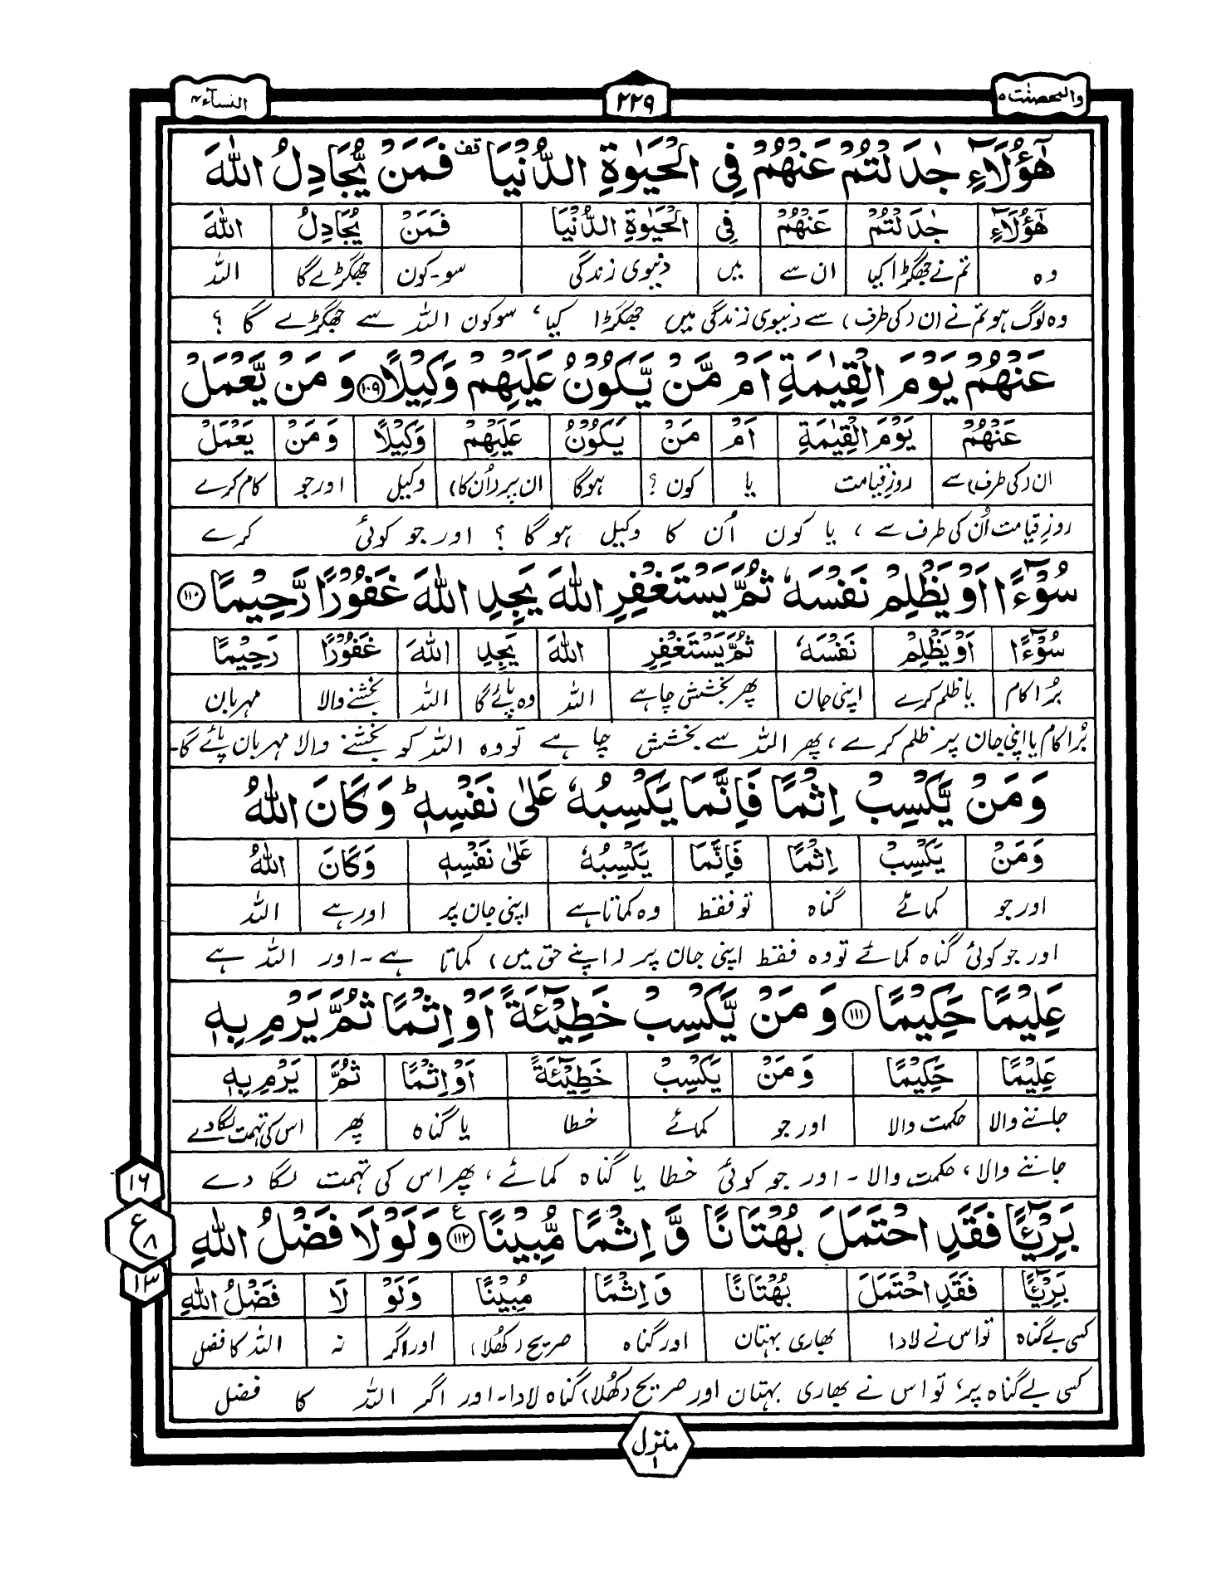 والمحصنٰت ۵
۲۲۹
النسآء ۴
هٰۤؤُلَآءِ جٰدَلْتُمْ عَنْهُمْ فِی الْحَیٰوةِ الدُّنْیَا قف فَمَنْ یُّجَادِلُ اللّٰهَ
هٰۤؤُلَآءِ جٰدَلْتُمْ عَنْهُمْ فِی الْحَیٰوةِ الدُّنْیَا فَمَنْ یُّجَادِلُ اللّٰهَ
وہ تم نے جھگڑا کیا ان سے میں دنیوی زندگی سو۔کون جھگڑے گا اللہ
وہ لوگ ہو تم نے ان (کی طرف) سے دنیوی زندگی میں جھگڑا کیا، سو کون اللہ سے جھگڑے گا ؟
عَنْهُمْ یَوْمَ الْقِیٰمَةِ اَمْ مَّنْ یَّكُوْنُ عَلَیْهِمْ وَكِیْلًا ۝۱۰۹ وَ مَنْ یَّعْمَلْ
عَنْهُمْ یَوْمَ الْقِیٰمَةِ اَمْ مَنْ یَكُوْنُ عَلَیْهِمْ وَكِیْلًا وَمَنْ یَعْمَلْ
ان (کی طرف) سے روزِ قیامت یا کون ؟ ہوگا ان پر (اُن کا) وکیل اور جو کام کرے
روزِ قیامت اُن کی طرف سے ، یا کون اُن کا وکیل ہو گا ؟ اور جو کوئی کرے
سُوْٓءًا اَوْ یَظْلِمْ نَفْسَهٗ ثُمَّ یَسْتَغْفِرِ اللّٰهَ یَجِدِ اللّٰهَ غَفُوْرًا رَّحِیْمًا ۝۱۱۰
سُوْٓءًا اَوْ یَظْلِمْ نَفْسَهٗ ثُمَّ یَسْتَغْفِرِ اللّٰهَ یَجِدِ اللّٰهَ غَفُوْرًا رَحِیْمًا
بُرا کام یا ظلم کرے اپنی جان پھر بخشش چاہے اللہ وہ پائے گا اللہ بخشنے والا مہربان
بُرا کام یا اپنی جان پر ظلم کرے ، پھر اللہ سے بخشش چاہے تو وہ اللہ کو بخشنے والا مہربان پائے گا۔
وَ مَنْ یَّكْسِبْ اِثْمًا فَاِنَّمَا یَكْسِبُهٗ عَلٰی نَفْسِهٖ ؕ وَ كَانَ اللّٰهُ
وَمَنْ یَكْسِبْ اِثْمًا فَاِنَّمَا یَكْسِبُهٗ عَلٰی نَفْسِهٖ وَكَانَ اللّٰهُ
اور جو کمائے گناہ تو فقط وہ کماتا ہے اپنی جان پر اور ہے اللہ
اور جو کوئی گناہ کمائے تو وہ فقط اپنی جان پر (اپنے حق میں) کماتا ہے۔ اور اللہ ہے
عَلِیْمًا حَكِیْمًا ۝۱۱۱ وَ مَنْ یَّكْسِبْ خَطِیْٓئَةً اَوْ اِثْمًا ثُمَّ یَرْمِ بِهٖ
عَلِیْمًا حَكِیْمًا وَمَنْ یَكْسِبْ خَطِیْٓئَةً اَوْ اِثْمًا ثُمَّ یَرْمِ بِهٖ
جاننے والا حکمت والا اور جو کمائے خطا یا گناہ پھر اس کی تہمت لگا دے
جاننے والا ، حکمت والا ۔ اور جو کوئی خطا یا گناہ کمائے ، پھر اس کی تہمت لگا دے
۱۶
ع
۸
۱۳
بَرِیْٓــًٔا فَقَدِ احْتَمَلَ بُهْتَانًا وَّ اِثْمًا مُّبِیْنًا ۝۱۱۲ ع وَ لَوْ لَا فَضْلُ اللّٰهِ
بَرِیْٓــًٔا فَقَدِ احْتَمَلَ بُهْتَانًا وَاِثْمًا مُبِیْنًا وَلَوْ لَا فَضْلُ اللّٰهِ
کسی بے گناہ تو اس نے لادا بھاری بہتان اور گناہ صریح (کھُلا) اور اگر نہ اللہ کا فضل
کسی بے گناہ پر، تو اس نے بھاری بہتان اور صریح (کھُلا) گناہ لادا۔ اور اگر اللہ کا فضل
منزل ۱